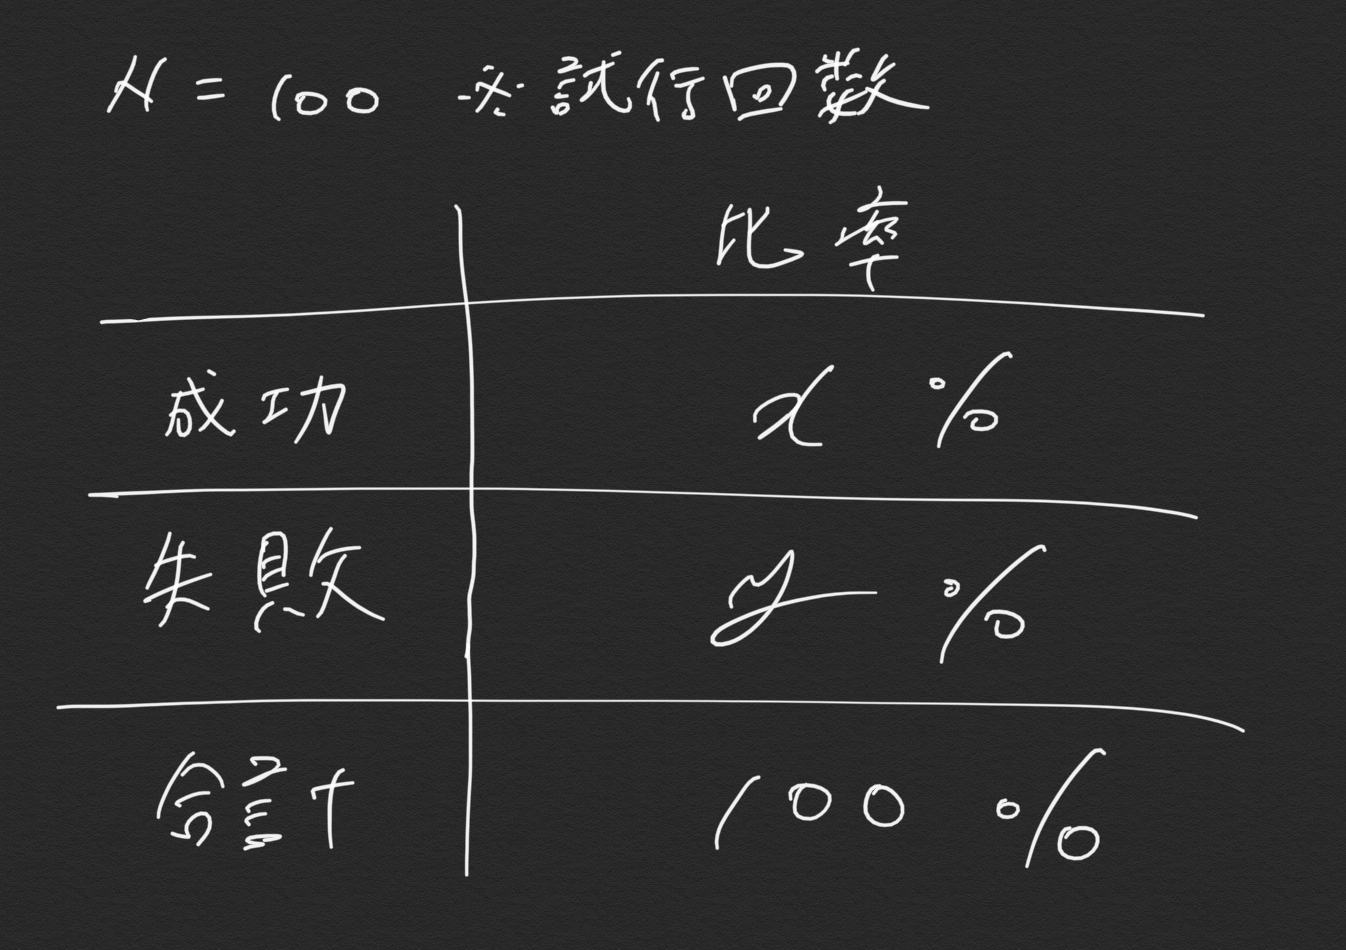 N = 100 ※試行回数
比率
成功 x %
失敗 y %
合計 100 %